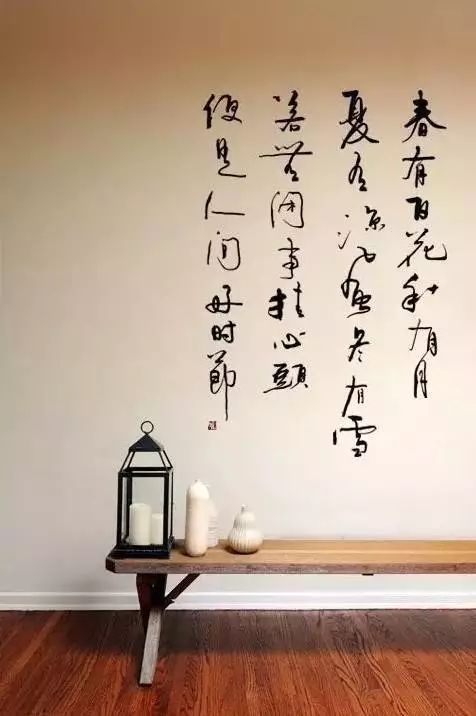 春有百花秋有月
夏有凉风冬有雪
若無闲事挂心頭
便是人间好时節